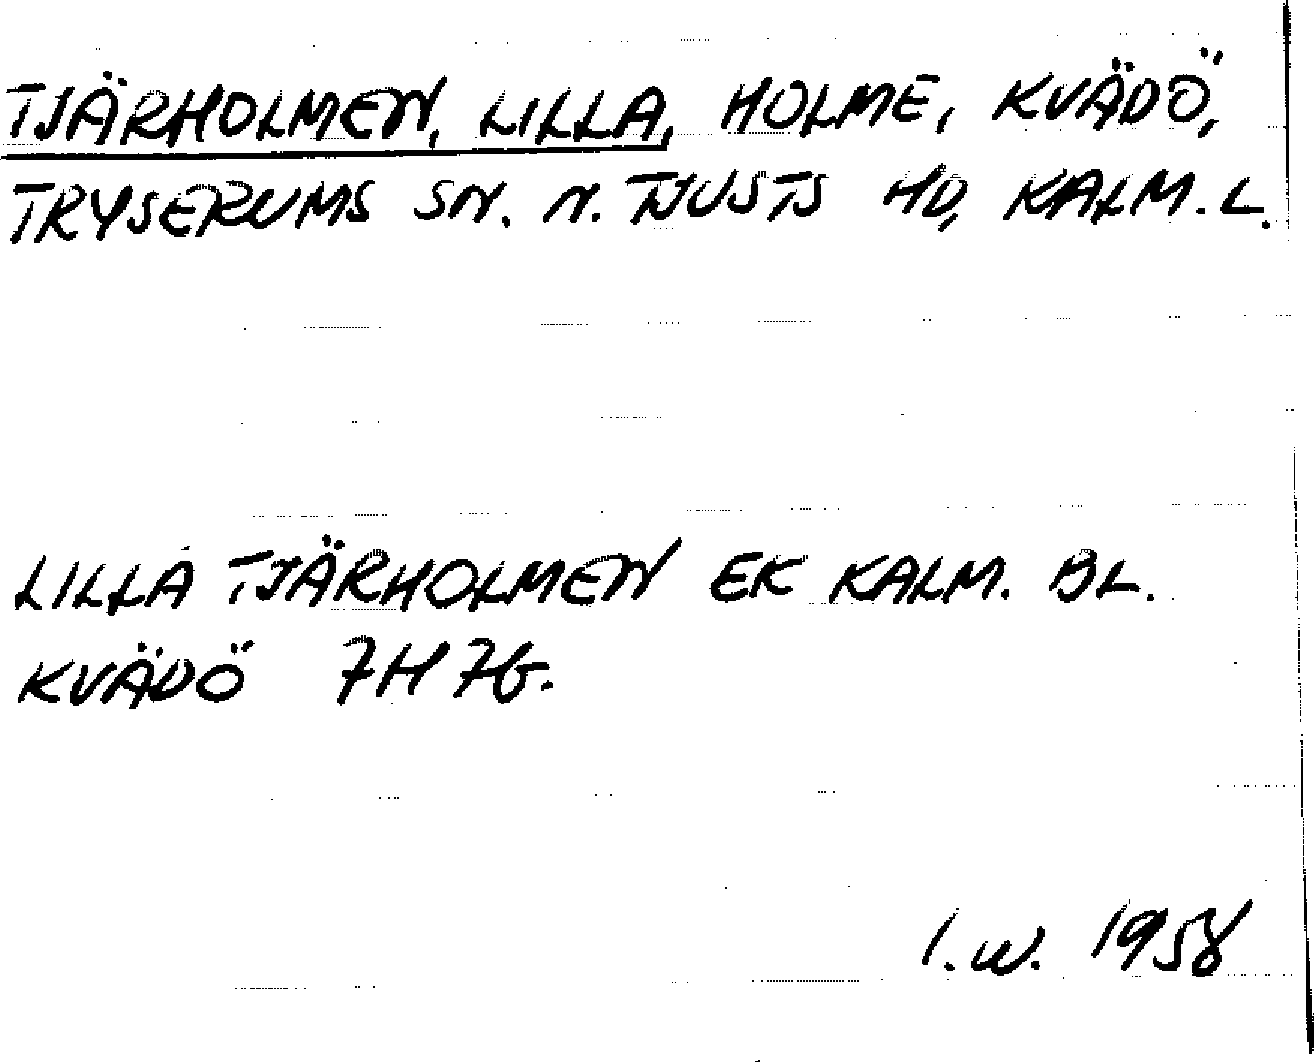 TJÄRHOLMEN, LILLA, HOLME, KVÄDÖ,
TRYSERUMS SN. N. TJUSTS HD, KALM. L.
LILLA TJÄRHOLMEN EK KALM. BL.
KVÄDÖ 7H7G.
I.W. 1958